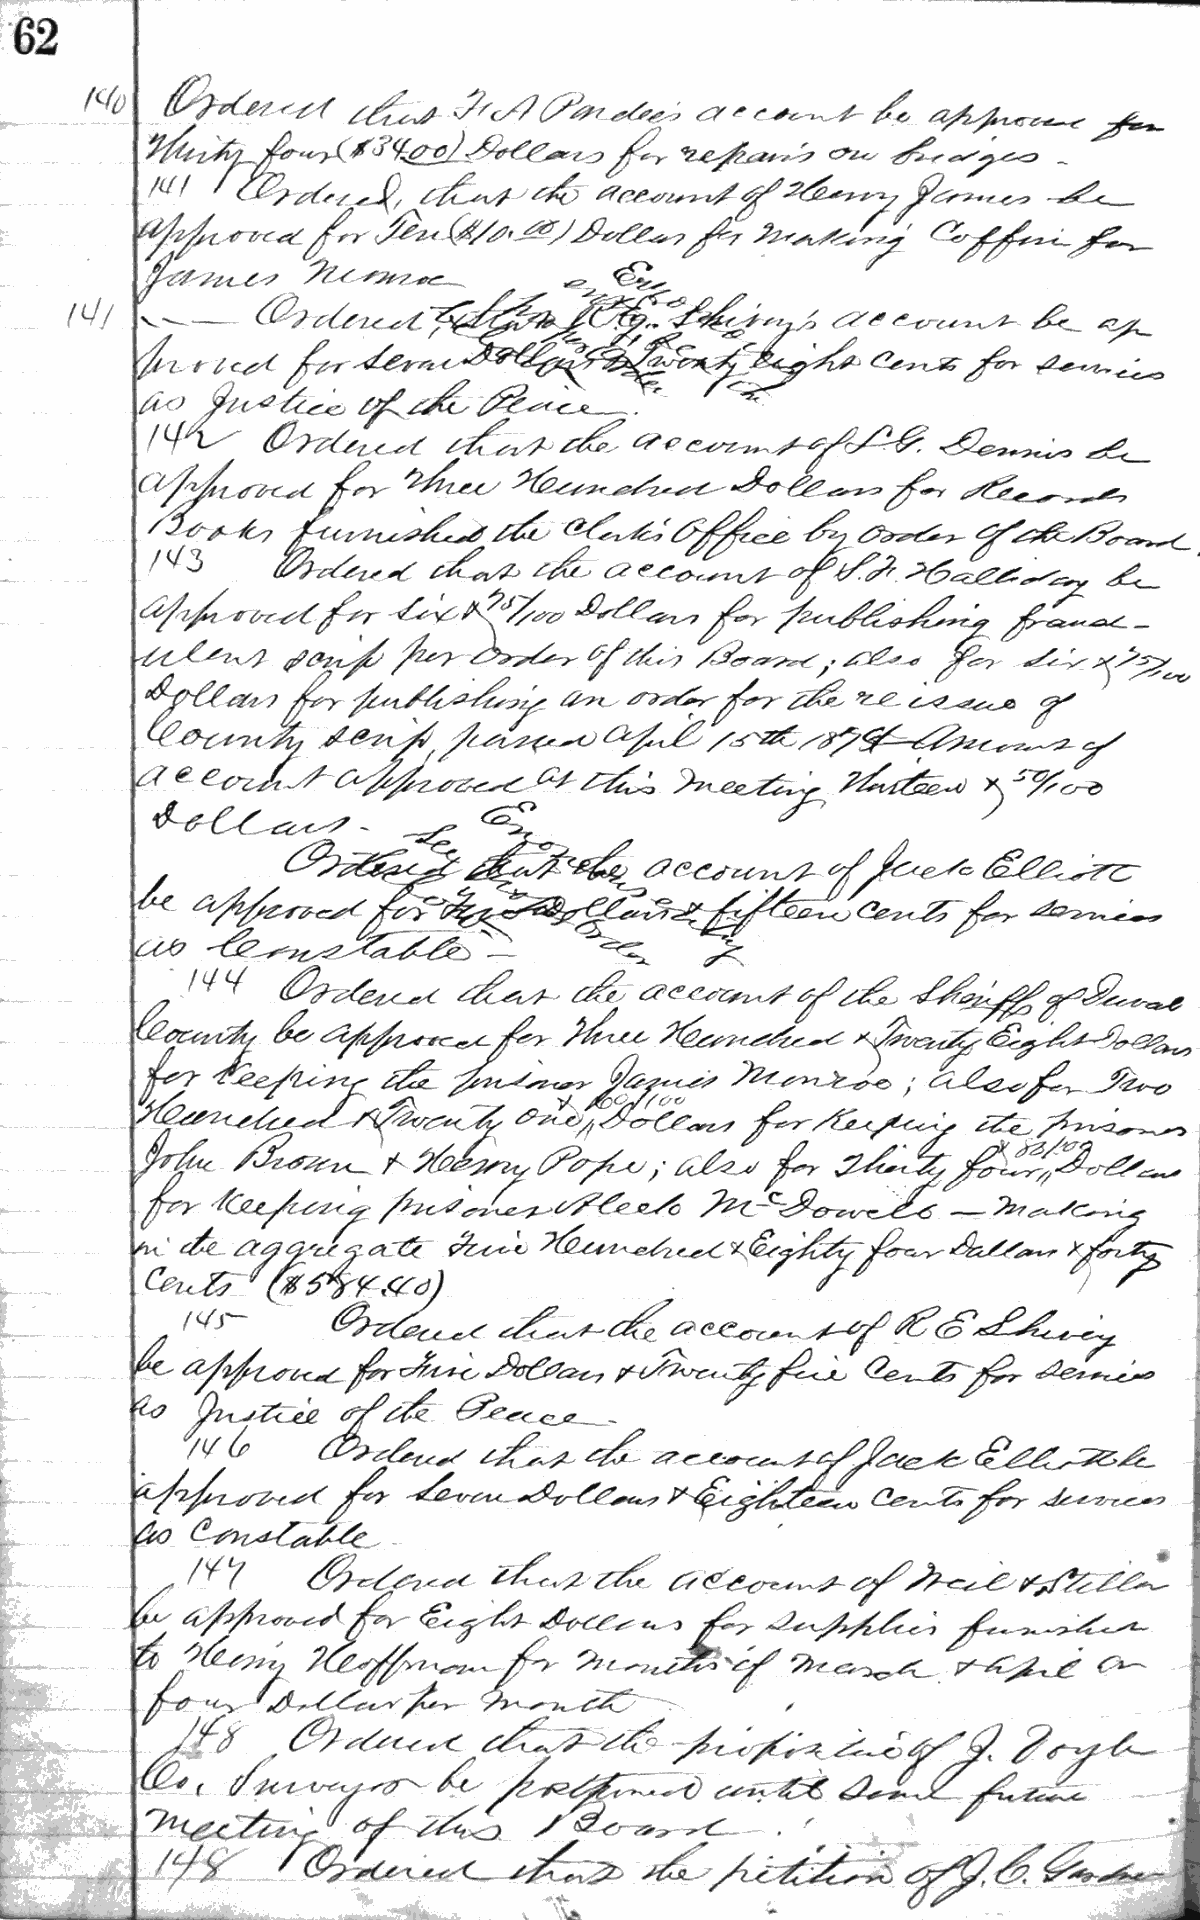 62
140 Ordered that F. A Pardee's account be approved for
Thirty four ($34.00) Dollars for repairs on bridges -
141 Ordered, that the account of Henry James be
approved for Ten ($10.00) Dollars for making Coffin for
James Monroe
141 Ordered, that Shivey's account be ap
proved for seven Dollars & Twenty eight cents for services
as Justice of the Peace.
142 Ordered that the account of L. G. Dennis be
approved for Three Hundred Dollars for Records
Books furnished the Clerk's Office by order of the Board.
143 Ordered that the account of S. F. Halliday be
approved for six & 75/100 Dollars for publishing fraud-
ulent scrip per order of this Board; also for six & 75/100
Dollars for publishing an order for the re issue of
County scrip, passed April 15th 1874 Amount of
account approved at this meeting Thirteen & 50/100
Dollars -
Ordered that the account of Jack Elliott
be approved for Dollars & fifteen cents for services
as Constable -
144 Ordered that the account of the Sheriff of Duval
County be approved for Three Hundred & Twenty Eight Dollars
for Keeping the prisoner James Monroe; also for Two
Hundred & Twenty One & 60/100 Dollars for Keeping the prisoners
John Brown & Henry Pope; also for Thirty four & 80/100 Dollars
for Keeping prisoner Aleck McDowell — making
in the aggregate Five Hundred & Eighty four Dollars & forty
Cents ($584.40)
145 Ordered that the account of R E Shivey
be approved for Five Dollars & Twenty five Cents for services
as Justice of the Peace -
146 Ordered that the account of Jack Elliott be
approved for Seven Dollars & Eighteen Cents for services
as Constable
147 Ordered that the account of Weil & Stiller
be approved for Eight Dollars for supplies furnished
to Henry Hoffman for months of March & April
four Dollars per month
148 Ordered that the proposition of J. Doyle
Co. Surveyor be postponed until some future
meeting of this Board.
148 Ordered that the petition of J. C. Gardner